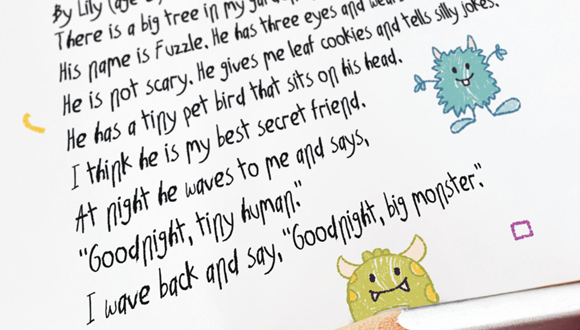 By Lily (age
There is a big tree in my
His name is Fuzzle. He has three eyes and
He is not scary. He gives me leaf cookies and tells silly jokes.
He has a tiny pet bird that sits on his head.
I think he is my best secret friend.
At night he waves to me and says,
"Goodnight, tiny human."
I wave back and say, "Goodnight, big monster."